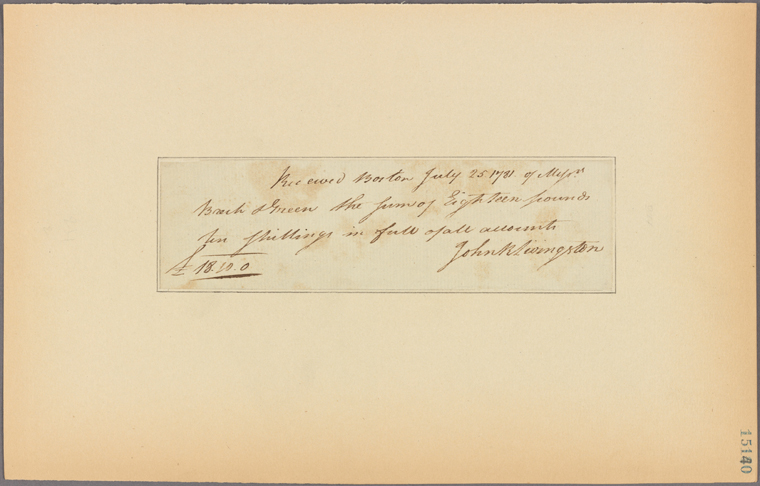 Received Boston July 25 1781 of Messrs
& Green the sum of Eighteen pounds
ten shillings in full of all accounts
John R Livingston
£ 18.10.0
15140